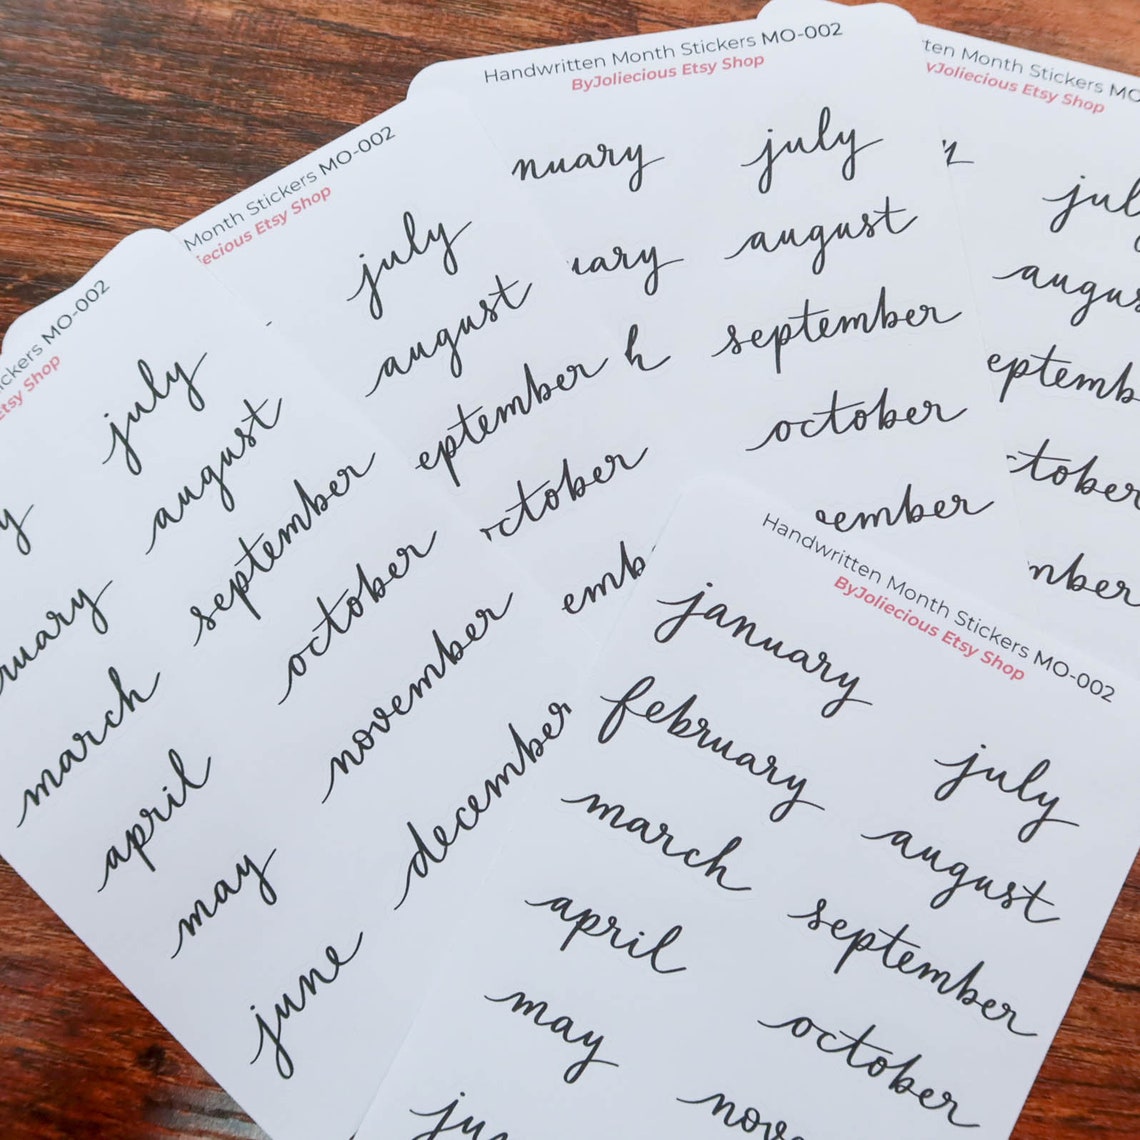 ckers MO-002
Etsy Shop
y
ruary
march
april
may
june
july
august
september
october
november
december
Month Stickers MO-002
liecious Etsy Shop
july
august
eptember
october
emb
Handwritten Month Stickers MO-002
ByJoliecious Etsy Shop
nuary
uary
h
july
august
september
october
ember
ten Month Stickers MO
yJoliecious Etsy Shop
jul
augus
eptemb
tober
mber
Handwritten Month Stickers MO-002
ByJoliecious Etsy Shop
january
february
march
april
may
ju
july
august
september
october
nov